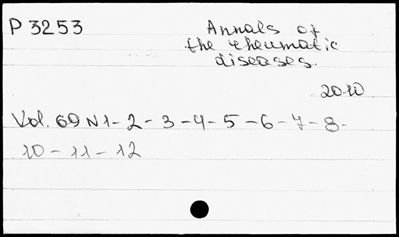 P 3253
Annals of
the rheumatic
diseases.
2010
Vol. 69 N 1 - 2 - 3 - 4 - 5 - 6 - 7 - 8 -
10 - 11 - 12